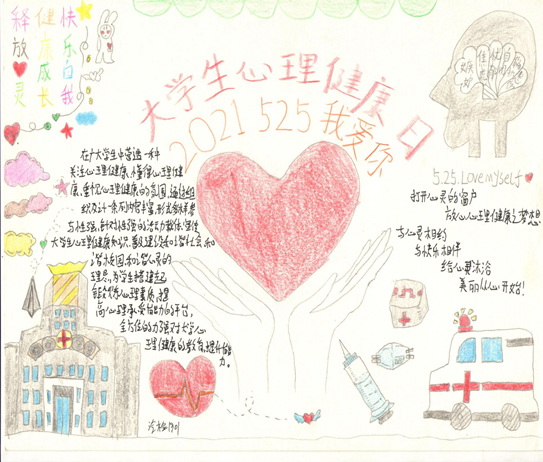 快乐自我
健康成长
释放心灵
大学生心理健康日
2021 525 我爱你
在广大学生中营造一种
关注心理健康、懂得心理健
康、重视心理健康的氛围,通过组
织及计一系列内容丰富,形式多样参
与性强,针对性强的活动载体,宣传
大学生心理健康知识,普及建设和谐社会和
谐校园和谐心灵的
理念,为学生搭建起
锻炼心理素质,提
高心理承受能力的平台,
全方位的力强对大学人心
理健康的教育,提升能
力。
5.25. Love myself
打开心灵的窗户
放飞心理健康之梦想
与心灵相约
与快乐相伴
给心灵沐浴
美丽从心开始!